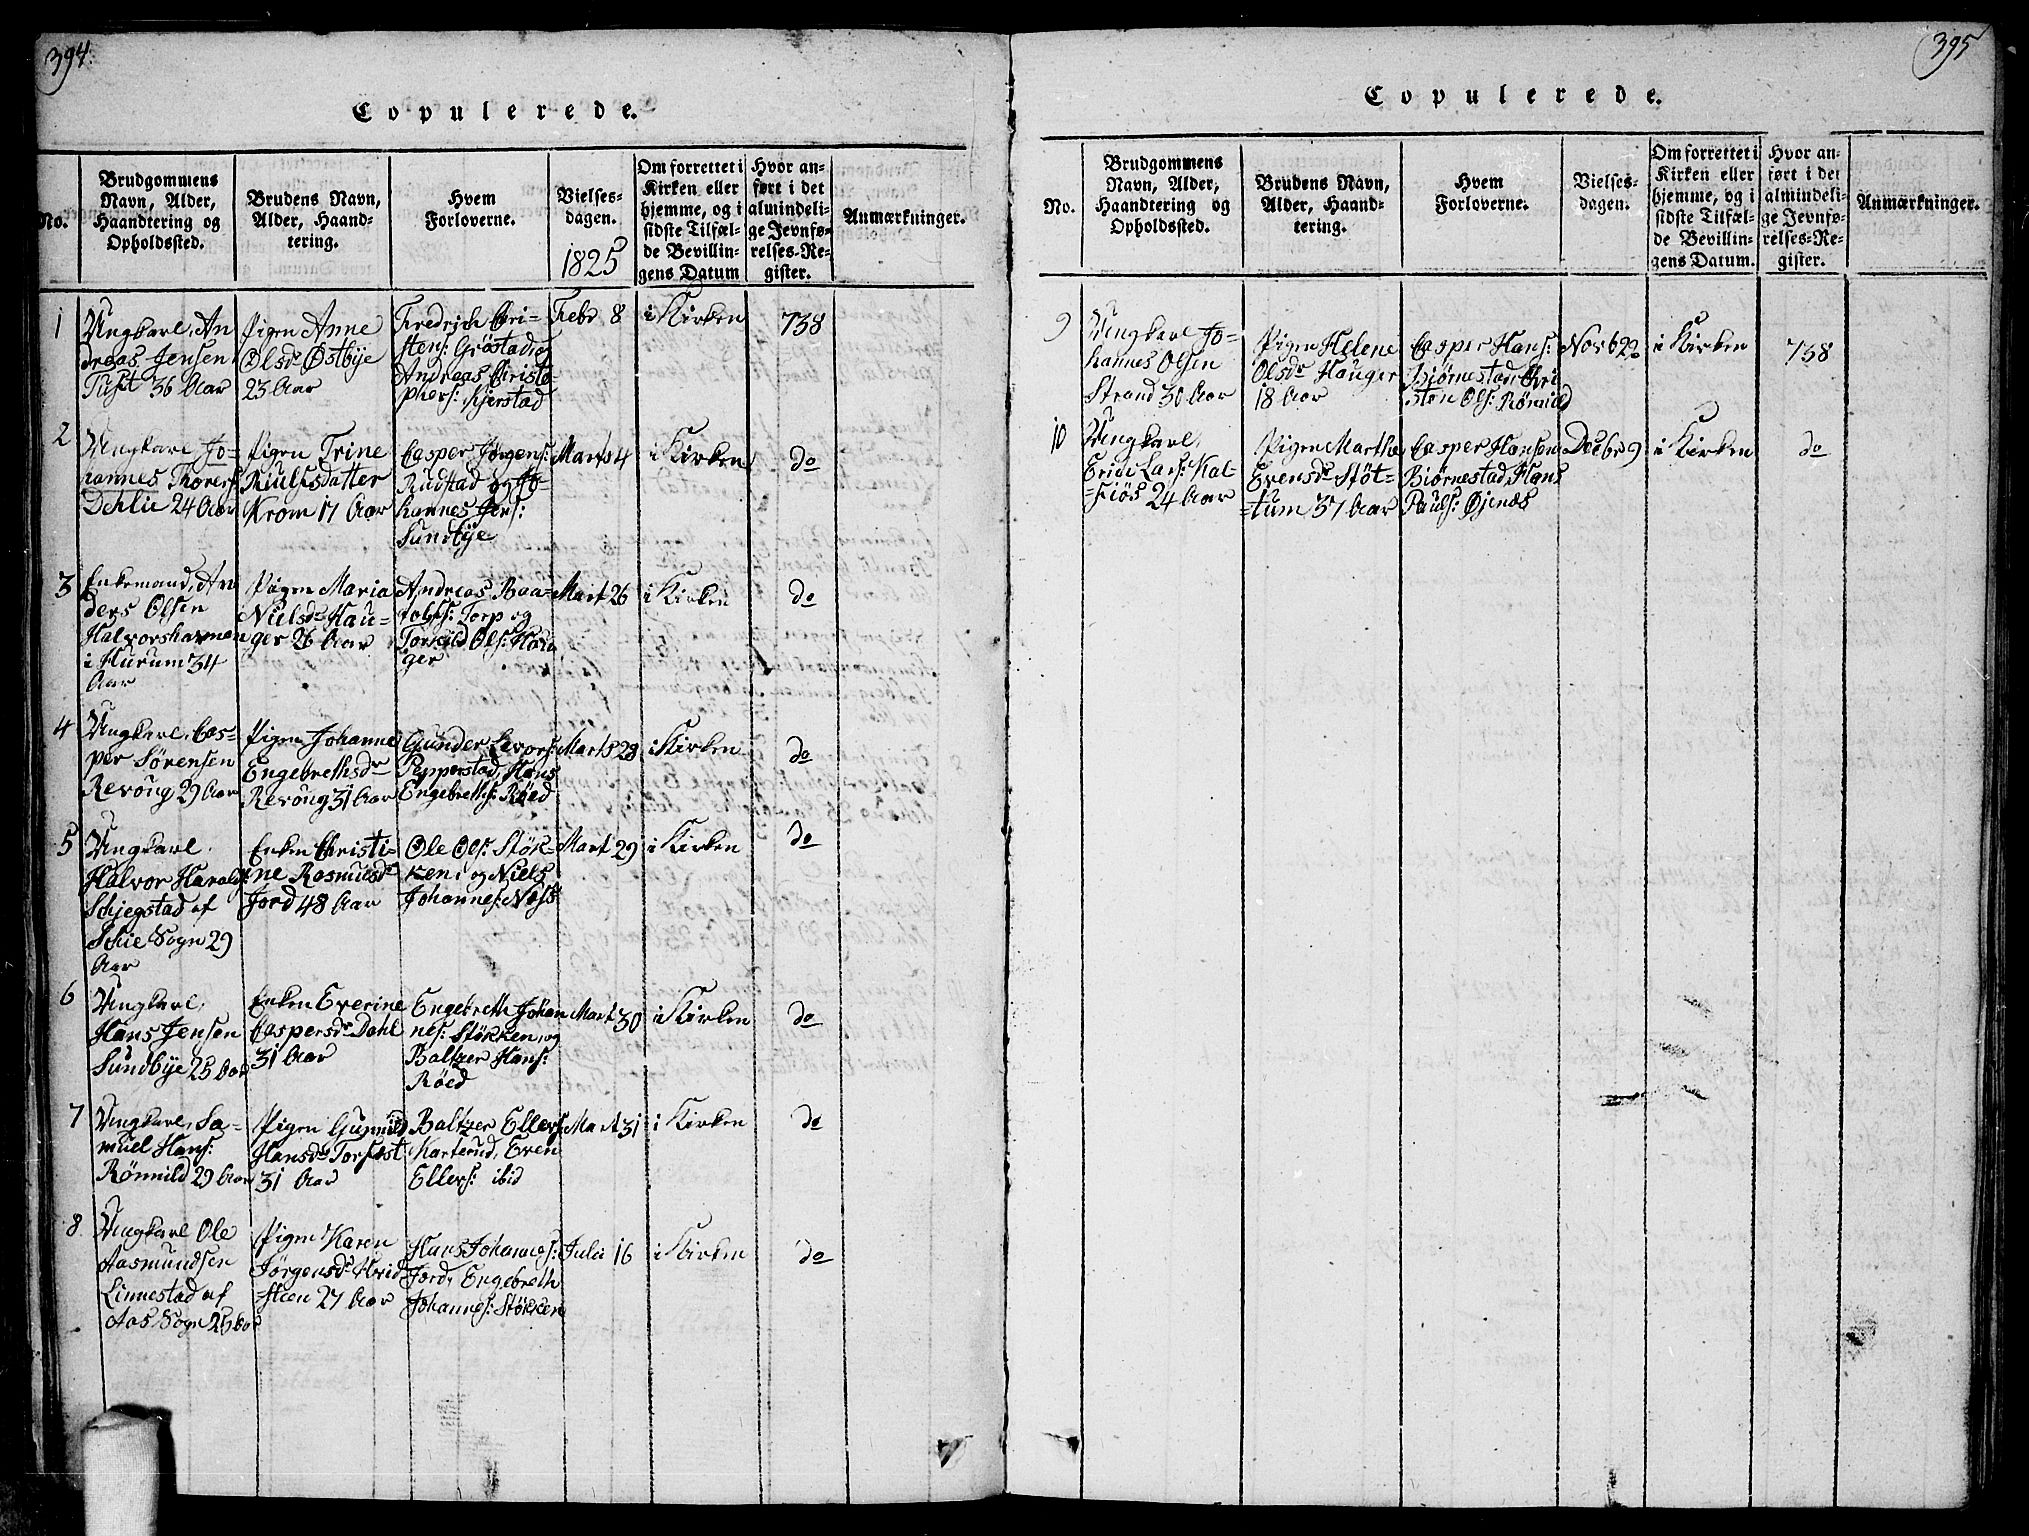 394.
Copulerede.
No.
Brudgommens
Navn, Alder,
Haandtering og
Opholdssted.
Brudens Navn,
Alder, Haand-
tering.
Hvem
Forloverne.
Vielses-
dagen.
1825
Om forrettet i
Kirken eller
hjemme, og i
sidste Tilfæl-
de Bevillin-
gens Datum
Hvor an-
ført i det
almindeli-
ge Jevnfø-
relses-Re-
gister.
Anmærkninger.
1
Ungkarl, An
dreas Jensen
36 Aar
Pigen Anne
Olsdr Østbye
23 Aar
Fredrich Cri-
stens: Gröstad og
Andreas Christo-
phers: Kjerstad
Febr 8
i Kirken
738
2
Ungkarl Jo-
hannes Thorers
Dehlie 24 Aar
Pigen Trine
Riulfsdatter
Krom 17 Aar
Casper Jørgens:
Rudstad og Jo-
hannes Jens:
Sundbye
Marts 4
i Kirken
do
3
Enkemand, An
ders Olsen
Halvorshavnen
i Hurum 34
Aar
Pigen Maria
Nielsdr Hau-
ger 26 Aar
Andreas Baa-
tolfs: Torp og
Torkild Ols: Hau
ger
Mart 26
i Kirken
do
4
Ungkarl, Cas-
per Sörensen
Revoug 29 Aar
Pigen Johanne
Engebrethsdr
Revoug 31 Aar
Gunder Levors:
Pepperstad, Hans
Engebreths: Röed
Marts 28
i Kirken
do
5
Ungkarl
Halvor Harolds
Schjegstad af
Schie Sogn 29
Aar
Enken Christi-
ne Rasmusdr
Jord 48 Aar
Ole Ols: Stök-
ken, og Niels
Johannes: Noss
Mart 29
i Kirken
do
6
Ungkarl,
Hans Jensen
Sundbye 25 Aar
Enken Everine
Caspersdr Dahl
31 Aar
Engebreth Johan
nes: Stökken, og
Baltzer Hans:
Röed
Mart 30
i Kirken
do
7
Ungkarl, Sa-
muel Hans:
Römmild 29 Aar
Pigen Gunnild
Hansdr Torfæst
31 Aar
Baltzer Ellefs:
Karterud, Even
Ellefs: ibid
Mart 31
i Kirken
do
8
Ungkarl Ole
Aasmundsen
Linnestad af
Aas Sogn 25 Aar
Pigen Karen
Jörgensdr Hvid-
steen 27 Aar
Hans Johannes:
Jord, Engebreth
Johannes: Stökken
Julii 16
i Kirken
do
395
Copulerede.
No.
Brudgommens
Navn, Alder,
Haandtering og
Opholdssted.
Brudens Navn,
Alder, Haand-
tering.
Hvem
Forloverne.
Vielses-
dagen.
Om forrettet i
Kirken eller
hjemme, og i
sidste Tilfæl-
de Bevillin-
gens Datum.
Hvor an-
ført i det
almindeli-
ge Jevnfø-
relses-Re-
gister.
Anmærkninger.
9
Ungkarl Jo-
hannes Olsen
Strand 30 Aar
Pigen Helene
Olsdr Hauger
18 Aar
Casper Hans:
Bjørnestad, Chri
sten Ols: Römild
Novb 22
i Kirken
738
10
Ungkarl,
Erik Lars: Kal-
fiös 24 Aar
Pigen Marthe
Evensdr Støt-
tum 37 Aar
Casper Hansen
Biørnestad, Hans
Pauls: Øjenæs
Decbr 9
i Kirken
do